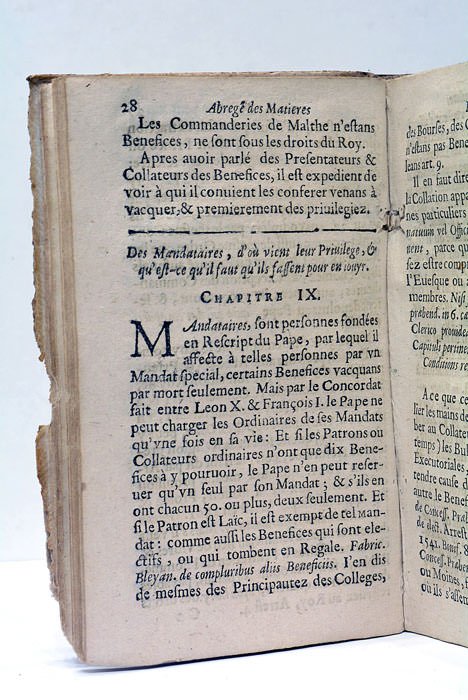 28 Abregé des Matieres
Les Commanderies de Malthe n'estans
Benefices, ne sont sous les droits du Roy.
Apres auoir parlé des Presentateurs &
Collateurs des Benefices, il est expedient de
voir à qui il conuient les conferer venans à
vacquer, & premierement des priuilegiez.
Des Mandataires, d'où vient leur Priuilege, &
qu'est-ce qu'il faut qu'ils fassent pour en iouyr.
CHAPITRE IX.
MAndataires, sont personnes fondées
en Rescript du Pape, par lequel il
affecte à telles personnes par vn
Mandat special, certains Benefices vacquans
par mort seulement. Mais par le Concordat
fait entre Leon X. & François I. le Pape ne
peut charger les Ordinaires de ses Mandats
qu'vne fois en sa vie: Et si les Patrons ou
Collateurs ordinaires n'ont que dix Bene-
fices à y pouruoir, le Pape n'en peut reser-
uer qu'vn seul par son Mandat; & s'ils en
ont chacun 50. ou plus, deux seulement. Et
si le Patron est Laïc, il est exempt de tel Man-
dat: comme aussi les Benefices qui sont ele-
ctifs, ou qui tombent en Regale. Fabric.
Bleyan. de compluribus aliis Beneficiis. I'en dis
de mesmes des Principautez des Colleges,
des Bourses, des C
n'estans pas Bene
leans art. 9.
Il en faut dire
la Collation appa
nes particuliers
natuum vel Offic
nent, parce qu
sez estre comp
l'Euesque ou
membres. Nisi
præbend. in 6. ca
Clerico prouidea
Capituli pertine
Conditions re
A ce que ce
lier les mains de
ber au Collateu
temps) les Bul
Executoriales,
tendre cause d
autre le Benef
de Concess. Præb
de elect. Arrest
1541. Bonif. 8
Concess. Præben
ou Moines,
où ils s'assem